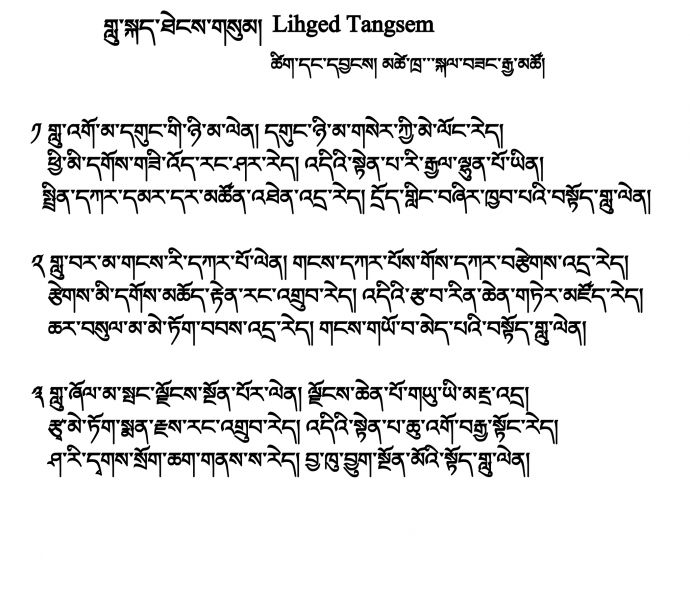 གླུ་སྐད་ཐེངས་གསུམ། Lihged Tangsem
ཚིག་དང་དབྱངས། མཚོ་ཁྲ་་་སྐལ་བཟང་རྒྱ་མཚོ།
༡ གླུ་འགོ་མ་དགུང་གི་ཉི་མ་ལེན། དགུང་ཉི་མ་གསེར་ཀྱི་མེ་ལོང་རེད།
ཕྱི་མི་དགོས་གཟི་འོད་རང་ཤར་རེད། འདིའི་སྟེན་པ་རི་རྒྱལ་ལྷུན་པོ་ཡིན།
སྤྲིན་དཀར་དམར་དར་མཚོན་འཐེན་འདྲ་རེད། དྲོད་གླིང་བཞིར་ཁྱབ་པའི་བསྟོད་གླུ་ལེན།
༢ གླུ་བར་མ་གངས་རི་དཀར་པོ་ལེན། གངས་དཀར་པོས་གོས་དཀར་བརྩེགས་འདྲ་རེད།
རྩེགས་མི་དགོས་མཆོད་རྟེན་རང་འགྲུབ་རེད། འདིའི་རྩ་བ་རིན་ཆེན་གཏེར་མཛོད་རེད།
ཆར་བསུལ་མ་མེ་ཏོག་བབས་འདྲ་རེད། གངས་གཡོ་བ་མེད་པའི་བསྟོད་གླུ་ལེན།
༣ གླུ་ཞོལ་མ་སྤང་ལྗོངས་སྔོན་པོར་ལེན། ལྗོངས་ཆེན་པོ་གཡུ་ཡི་མཎྜ་འདྲ།
རྩྭ་མེ་ཏོག་སྨན་རྫས་རང་འགྲུབ་རེད། འདིའི་སྟེན་པ་ཆུ་འགོ་བརྒྱ་སྟོང་རེད།
ཤ་རི་དྭགས་སྲོག་ཆག་གནས་ས་རེད། བྱ་ཁུ་བྱུག་སྔོན་མོའི་སྟོད་གླུ་ལེན།